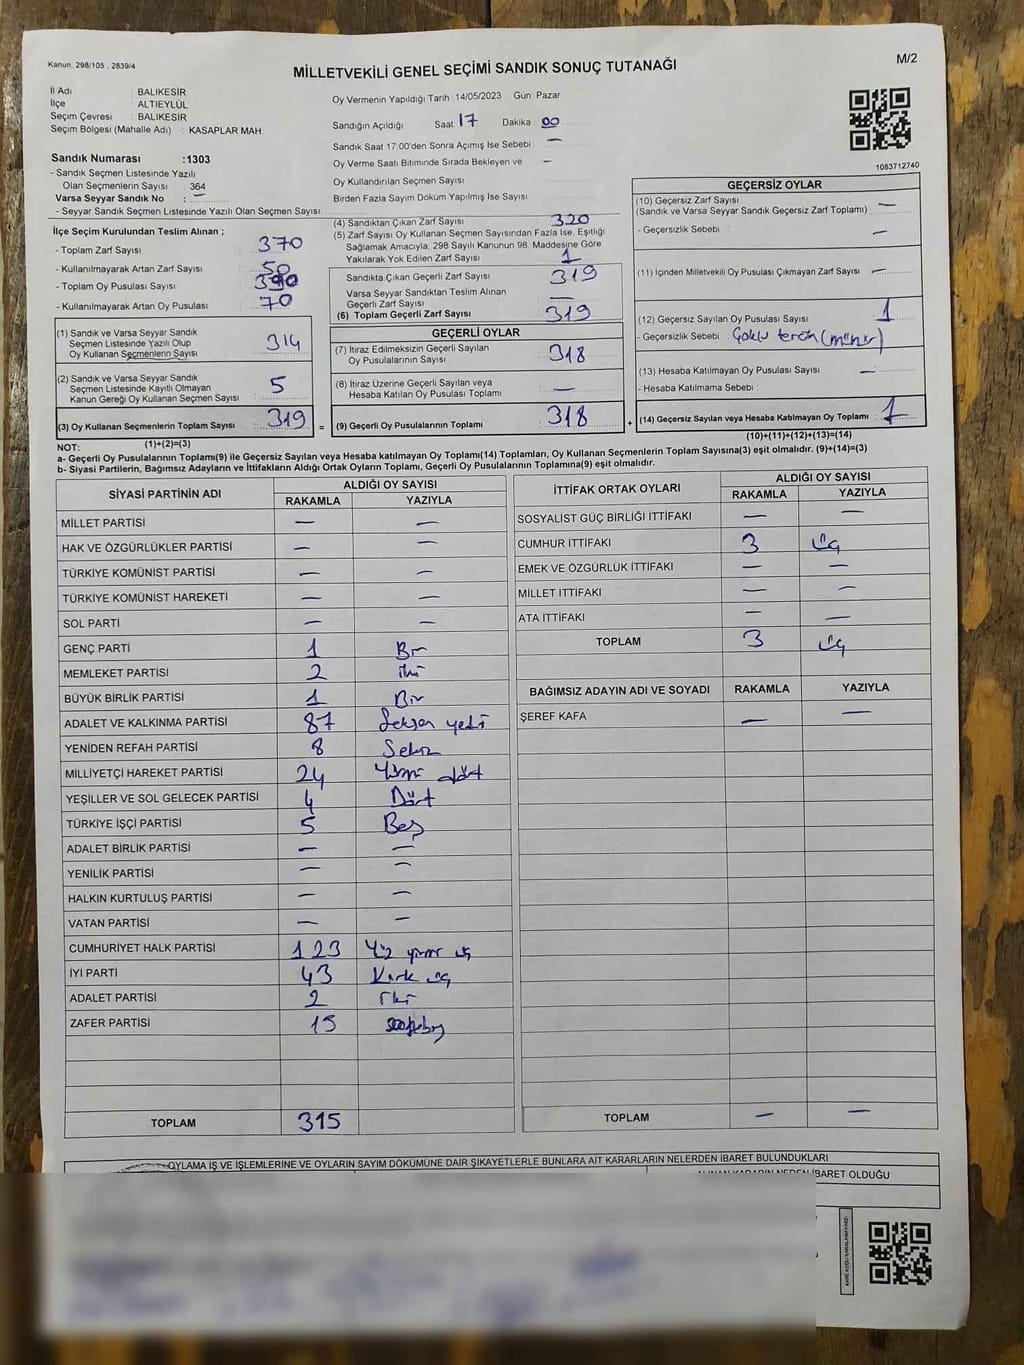 Kanun: 298/105 , 2839/4
MİLLETVEKİLİ GENEL SEÇİMİ SANDIK SONUÇ TUTANAĞI
M/2
İl Adı : BALIKESİR
İlçe : ALTIEYLÜL
Seçim Çevresi : BALIKESİR
Seçim Bölgesi (Mahalle Adı) : KASAPLAR MAH.
Sandık Numarası :1303
- Sandık Seçmen Listesinde Yazılı
Olan Seçmenlerin Sayısı : 364
Varsa Seyyar Sandık No : —
- Seyyar Sandık Seçmen Listesinde Yazılı Olan Seçmen Sayısı
Oy Vermenin Yapıldığı Tarih 14/05/2023 Gün: Pazar
Sandığın Açıldığı Saat 17 Dakika 00
Sandık Saat 17:00'den Sonra Açımış İse Sebebi : —
Oy Verme Saati Bitiminde Sırada Bekleyen ve —
Oy Kullandırılan Seçmen Sayısı
Birden Fazla Sayım Döküm Yapılmış İse Sayısı
1083712740
İlçe Seçim Kurulundan Teslim Alınan ;
- Toplam Zarf Sayısı : 370
- Kullanılmayarak Artan Zarf Sayısı : 50
- Toplam Oy Pusulası Sayısı : 390
- Kullanılmayarak Artan Oy Pusulası : 70
(1) Sandık ve Varsa Seyyar Sandık
Seçmen Listesinde Yazılı Olup
Oy Kullanan Seçmenlerin Sayısı : 314
(2) Sandık ve Varsa Seyyar Sandık
Seçmen Listesinde Kayıtlı Olmayan
Kanun Gereği Oy Kullanan Seçmen Sayısı : 5
(3) Oy Kullanan Seçmenlerin Toplam Sayısı : 319
(1)+(2)=(3)
(4) Sandıktan Çıkan Zarf Sayısı : 320
(5) Zarf Sayısı Oy Kullanan Seçmen Sayısından Fazla İse, Eşitliği
Sağlamak Amacıyla; 298 Sayılı Kanunun 98. Maddesine Göre
Yakılarak Yok Edilen Zarf Sayısı : 1
Sandıkta Çıkan Geçerli Zarf Sayısı : 319
Varsa Seyyar Sandıktan Teslim Alınan
Geçerli Zarf Sayısı : —
(6) Toplam Geçerli Zarf Sayısı : 319
GEÇERLİ OYLAR
(7) İtiraz Edilmeksizin Geçerli Sayılan
Oy Pusulalarının Sayısı : 318
(8) İtiraz Üzerine Geçerli Sayılan veya
Hesaba Katılan Oy Pusulası Toplamı : —
= (9) Geçerli Oy Pusulalarının Toplamı : 318
GEÇERSİZ OYLAR
(10) Geçersiz Zarf Sayısı : —
(Sandık ve Varsa Seyyar Sandık Geçersiz Zarf Toplamı)
- Geçersizlik Sebebi : —
(11) İçinden Milletvekili Oy Pusulası Çıkmayan Zarf Sayısı : —
(12) Geçersiz Sayılan Oy Pusulası Sayısı : 1
- Geçersizlik Sebebi : Çoklu tercih
(13) Hesaba Katılmayan Oy Pusulası Sayısı : —
- Hesaba Katılmama Sebebi :
+ (14) Geçersiz Sayılan veya Hesaba Katılmayan Oy Toplamı : 1
(10)+(11)+(12)+(13)=(14)
NOT:
a- Geçerli Oy Pusulaları Toplamı(9) ile Geçersiz Sayılan veya Hesaba katılmayan Oy Toplamı(14) Toplamları, Oy Kullanan Seçmenlerin Toplam Sayısına(3) eşit olmalıdır. (9)+(14)=(3)
b- Siyasi Partilerin, Bağımsız Adayların ve İttifakların Aldığı Ortak Oyların Toplamı, Geçerli Oy Pusulalarının Toplamına(9) eşit olmalıdır.
SİYASİ PARTİNİN ADI ALDIĞI OY SAYISI
RAKAMLA YAZIYLA
MİLLET PARTİSİ — —
HAK VE ÖZGÜRLÜKLER PARTİSİ — —
TÜRKİYE KOMÜNİST PARTİSİ — —
TÜRKİYE KOMÜNİST HAREKETİ — —
SOL PARTİ — —
GENÇ PARTİ 1 Bir
MEMLEKET PARTİSİ 2 iki
BÜYÜK BİRLİK PARTİSİ 1 Bir
ADALET VE KALKINMA PARTİSİ 87 Seksen yedi
YENİDEN REFAH PARTİSİ 8 Sekiz
MİLLİYETÇİ HAREKET PARTİSİ 24 Yirmi dört
YEŞİLLER VE SOL GELECEK PARTİSİ 4 Dört
TÜRKİYE İŞÇİ PARTİSİ 5 Beş
ADALET BİRLİK PARTİSİ — —
YENİLİK PARTİSİ — —
HALKIN KURTULUŞ PARTİSİ — —
VATAN PARTİSİ — —
CUMHURİYET HALK PARTİSİ 123 Yüz yirmi üç
İYİ PARTİ 43 Kırk üç
ADALET PARTİSİ 2 İki
ZAFER PARTİSİ 15
TOPLAM 315
İTTİFAK ORTAK OYLARI ALDIĞI OY SAYISI
RAKAMLA YAZIYLA
SOSYALİST GÜÇ BİRLİĞİ İTTİFAKI — —
CUMHUR İTTİFAKI 3 üç
EMEK VE ÖZGÜRLÜK İTTİFAKI — —
MİLLET İTTİFAKI — —
ATA İTTİFAKI — —
TOPLAM 3 üç
BAĞIMSIZ ADAYIN ADI VE SOYADI RAKAMLA YAZIYLA
ŞEREF KAFA — —
TOPLAM — —
OYLAMA İŞ VE İŞLEMLERİNE VE OYLARIN SAYIM DÖKÜMÜNE DAİR ŞİKAYETLERLE BUNLARA AİT KARARLARIN NELERDEN İBARET BULUNDUKLARI
ALINAN KARARIN NEDEN İBARET OLDUĞU